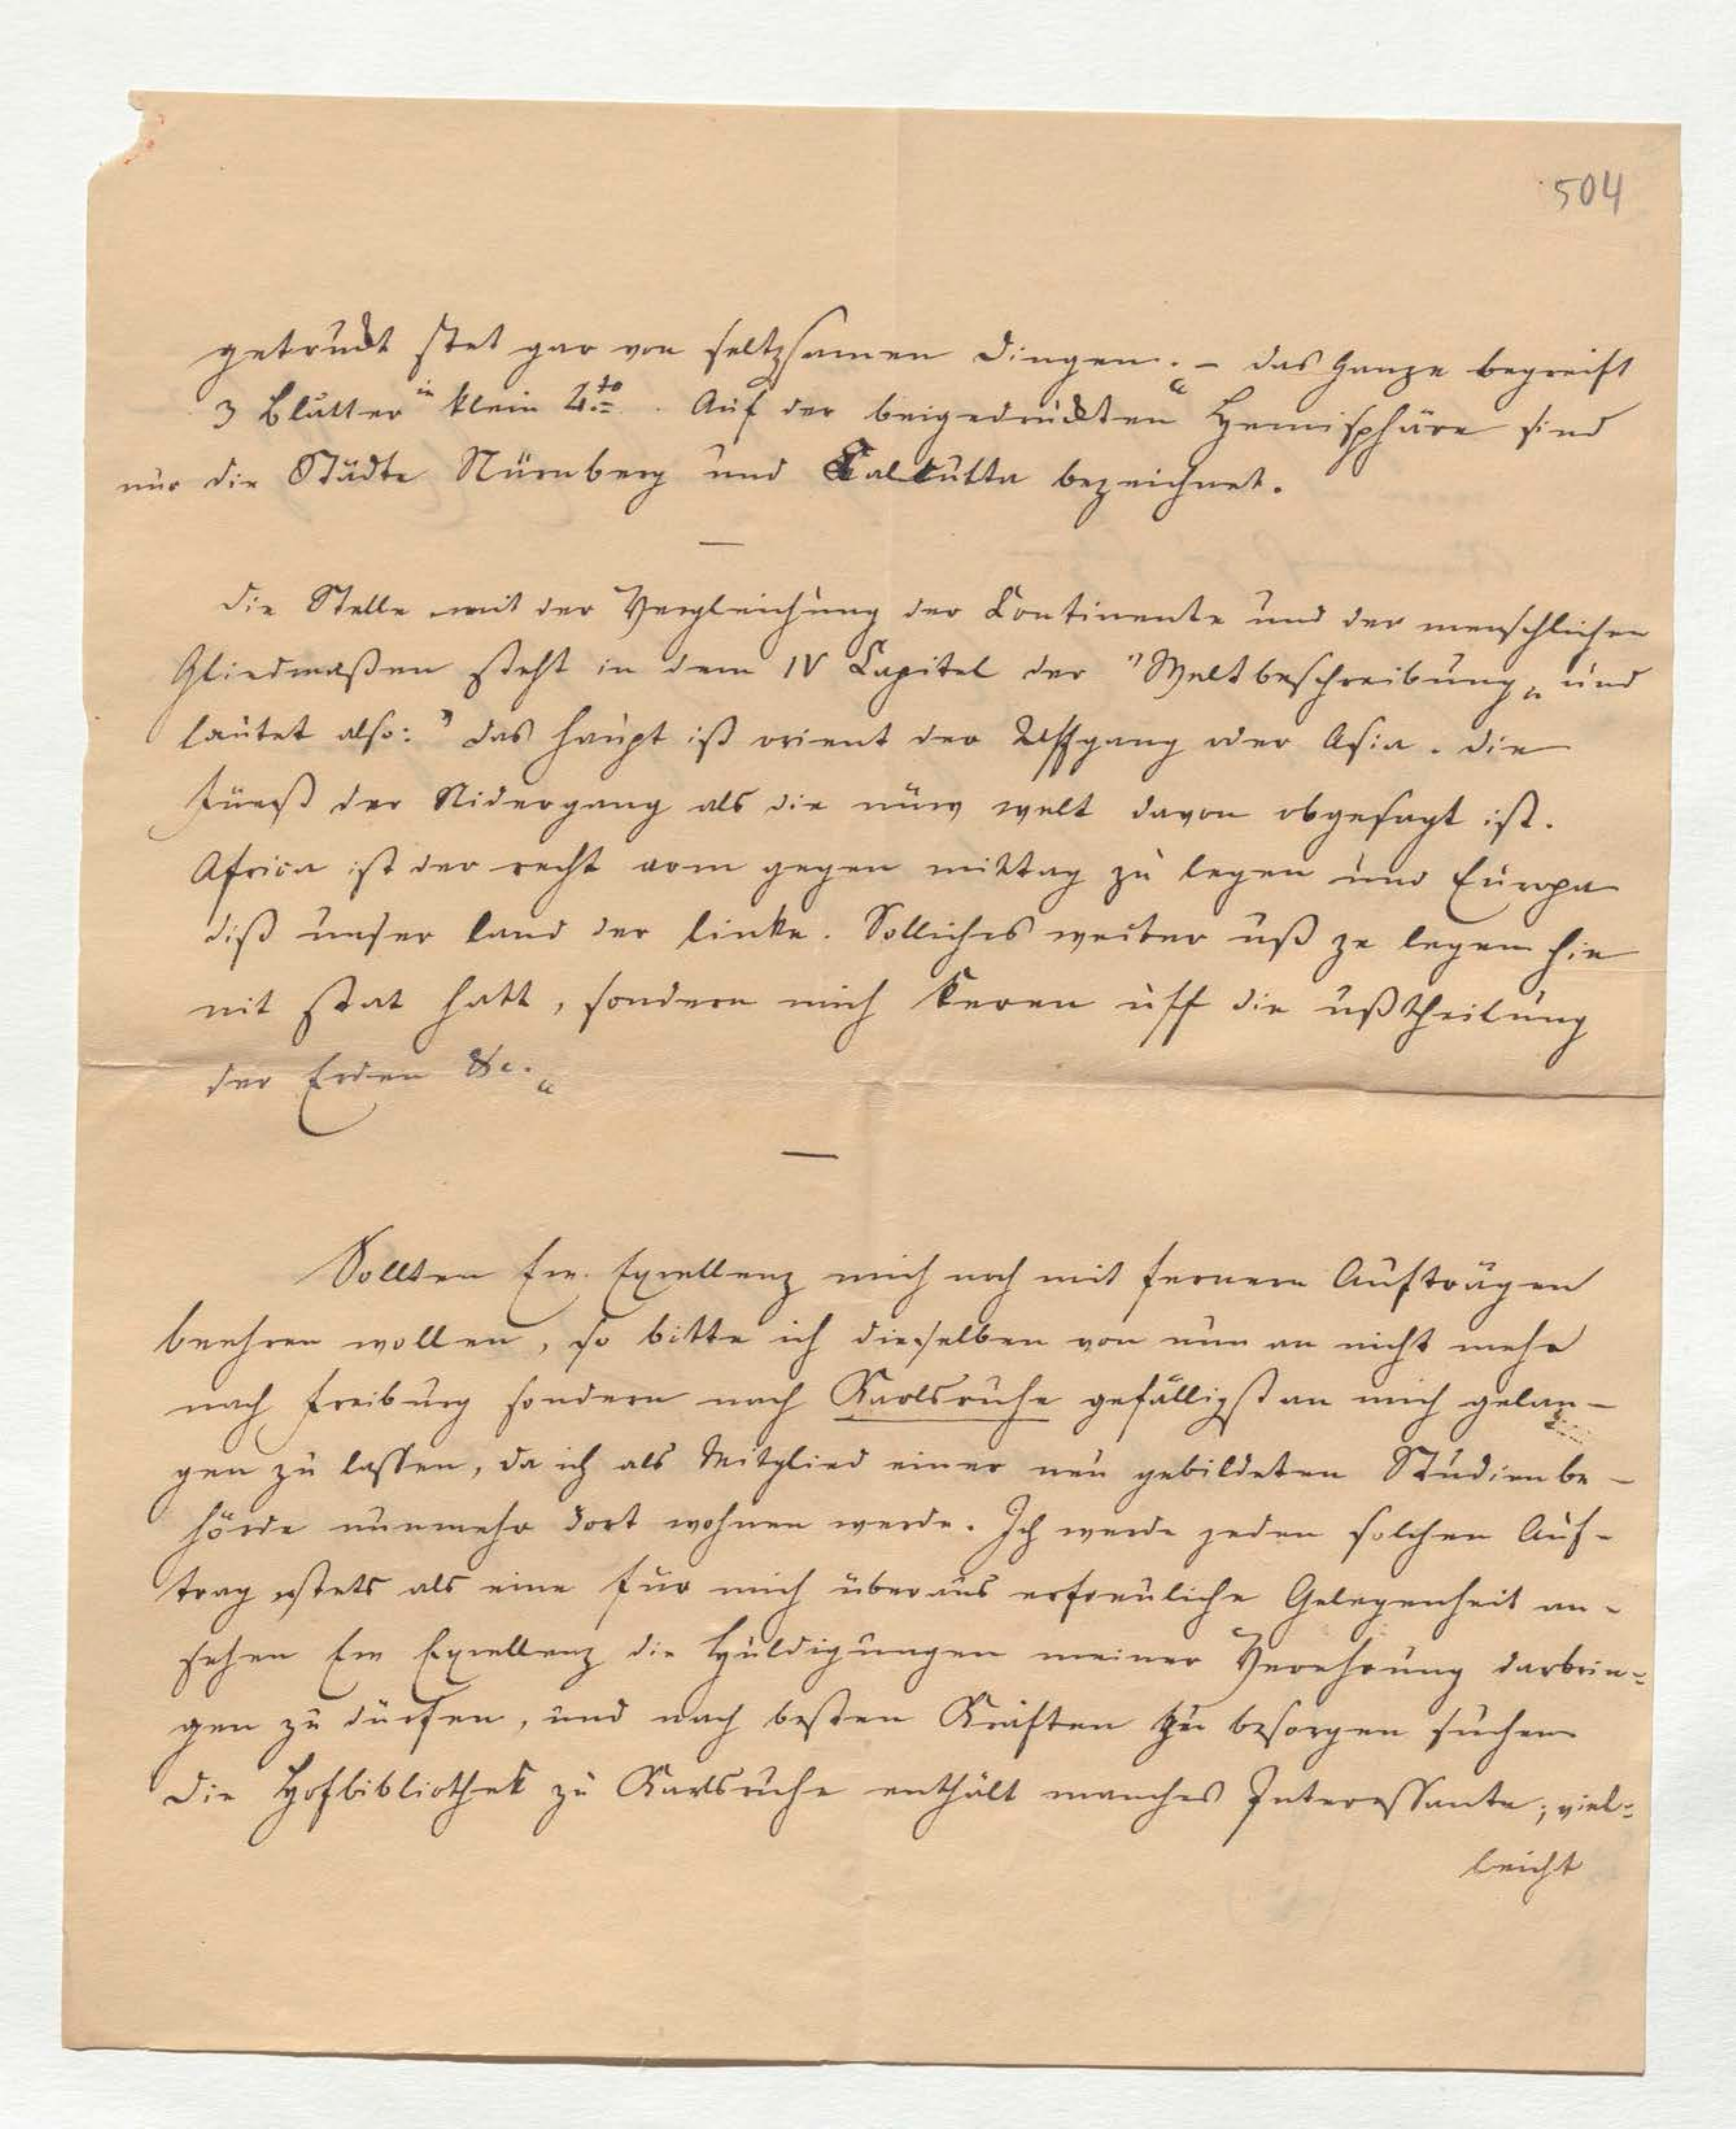 504
getruckt stet gar von seltzsamen Dingen." – das Ganze begreift
3 Blätter in klein 4to. Auf der beigedruckten Hemisphäre sind
nur die Städte Nürnberg und Calcutta bezeichnet.
—
Die Stelle mit der Vergleichung der Continente und der menschlichen
Gliedmaßen steht in dem IV Capitel der "Weltbeschreibung" und
lautet also: "Das haupt ist orient der Uffgang oder Asia. die
füueß der Nidergang als die nüw welt davon obgesagt ist.
Africa ist der recht arm gegen mittag zu legen und Europa
diß unser land der linke. Solliches weiter uß ze legen hie
nit stat hatt, sondern mich keren uff die ußtheilung
der Erden &c."
—
Sollten Ew. Excellenz mich noch mit fernern Aufträgen
beehren wollen, so bitte ich dieselben von nun an nicht mehr
nach Freiburg sondern nach Karlsruhe gefälligst an mich gelan-
gen zu lassen, da ich als Mitglied einer neu gebildeten Studienbe-
hörde nunmehr dort wohnen werde. Ich werde jeden solchen Auf-
trag stets als eine für mich überaus erfreuliche Gelegenheit an-
sehen Ew Excellenz die Huldigungen meiner Verehrung darbrin=
gen zu dürfen, und nach besten Kräften zu besorgen suchen
Die Hofbibliothek zu Karlsruhe enthält manches Interessante; viel=
leicht